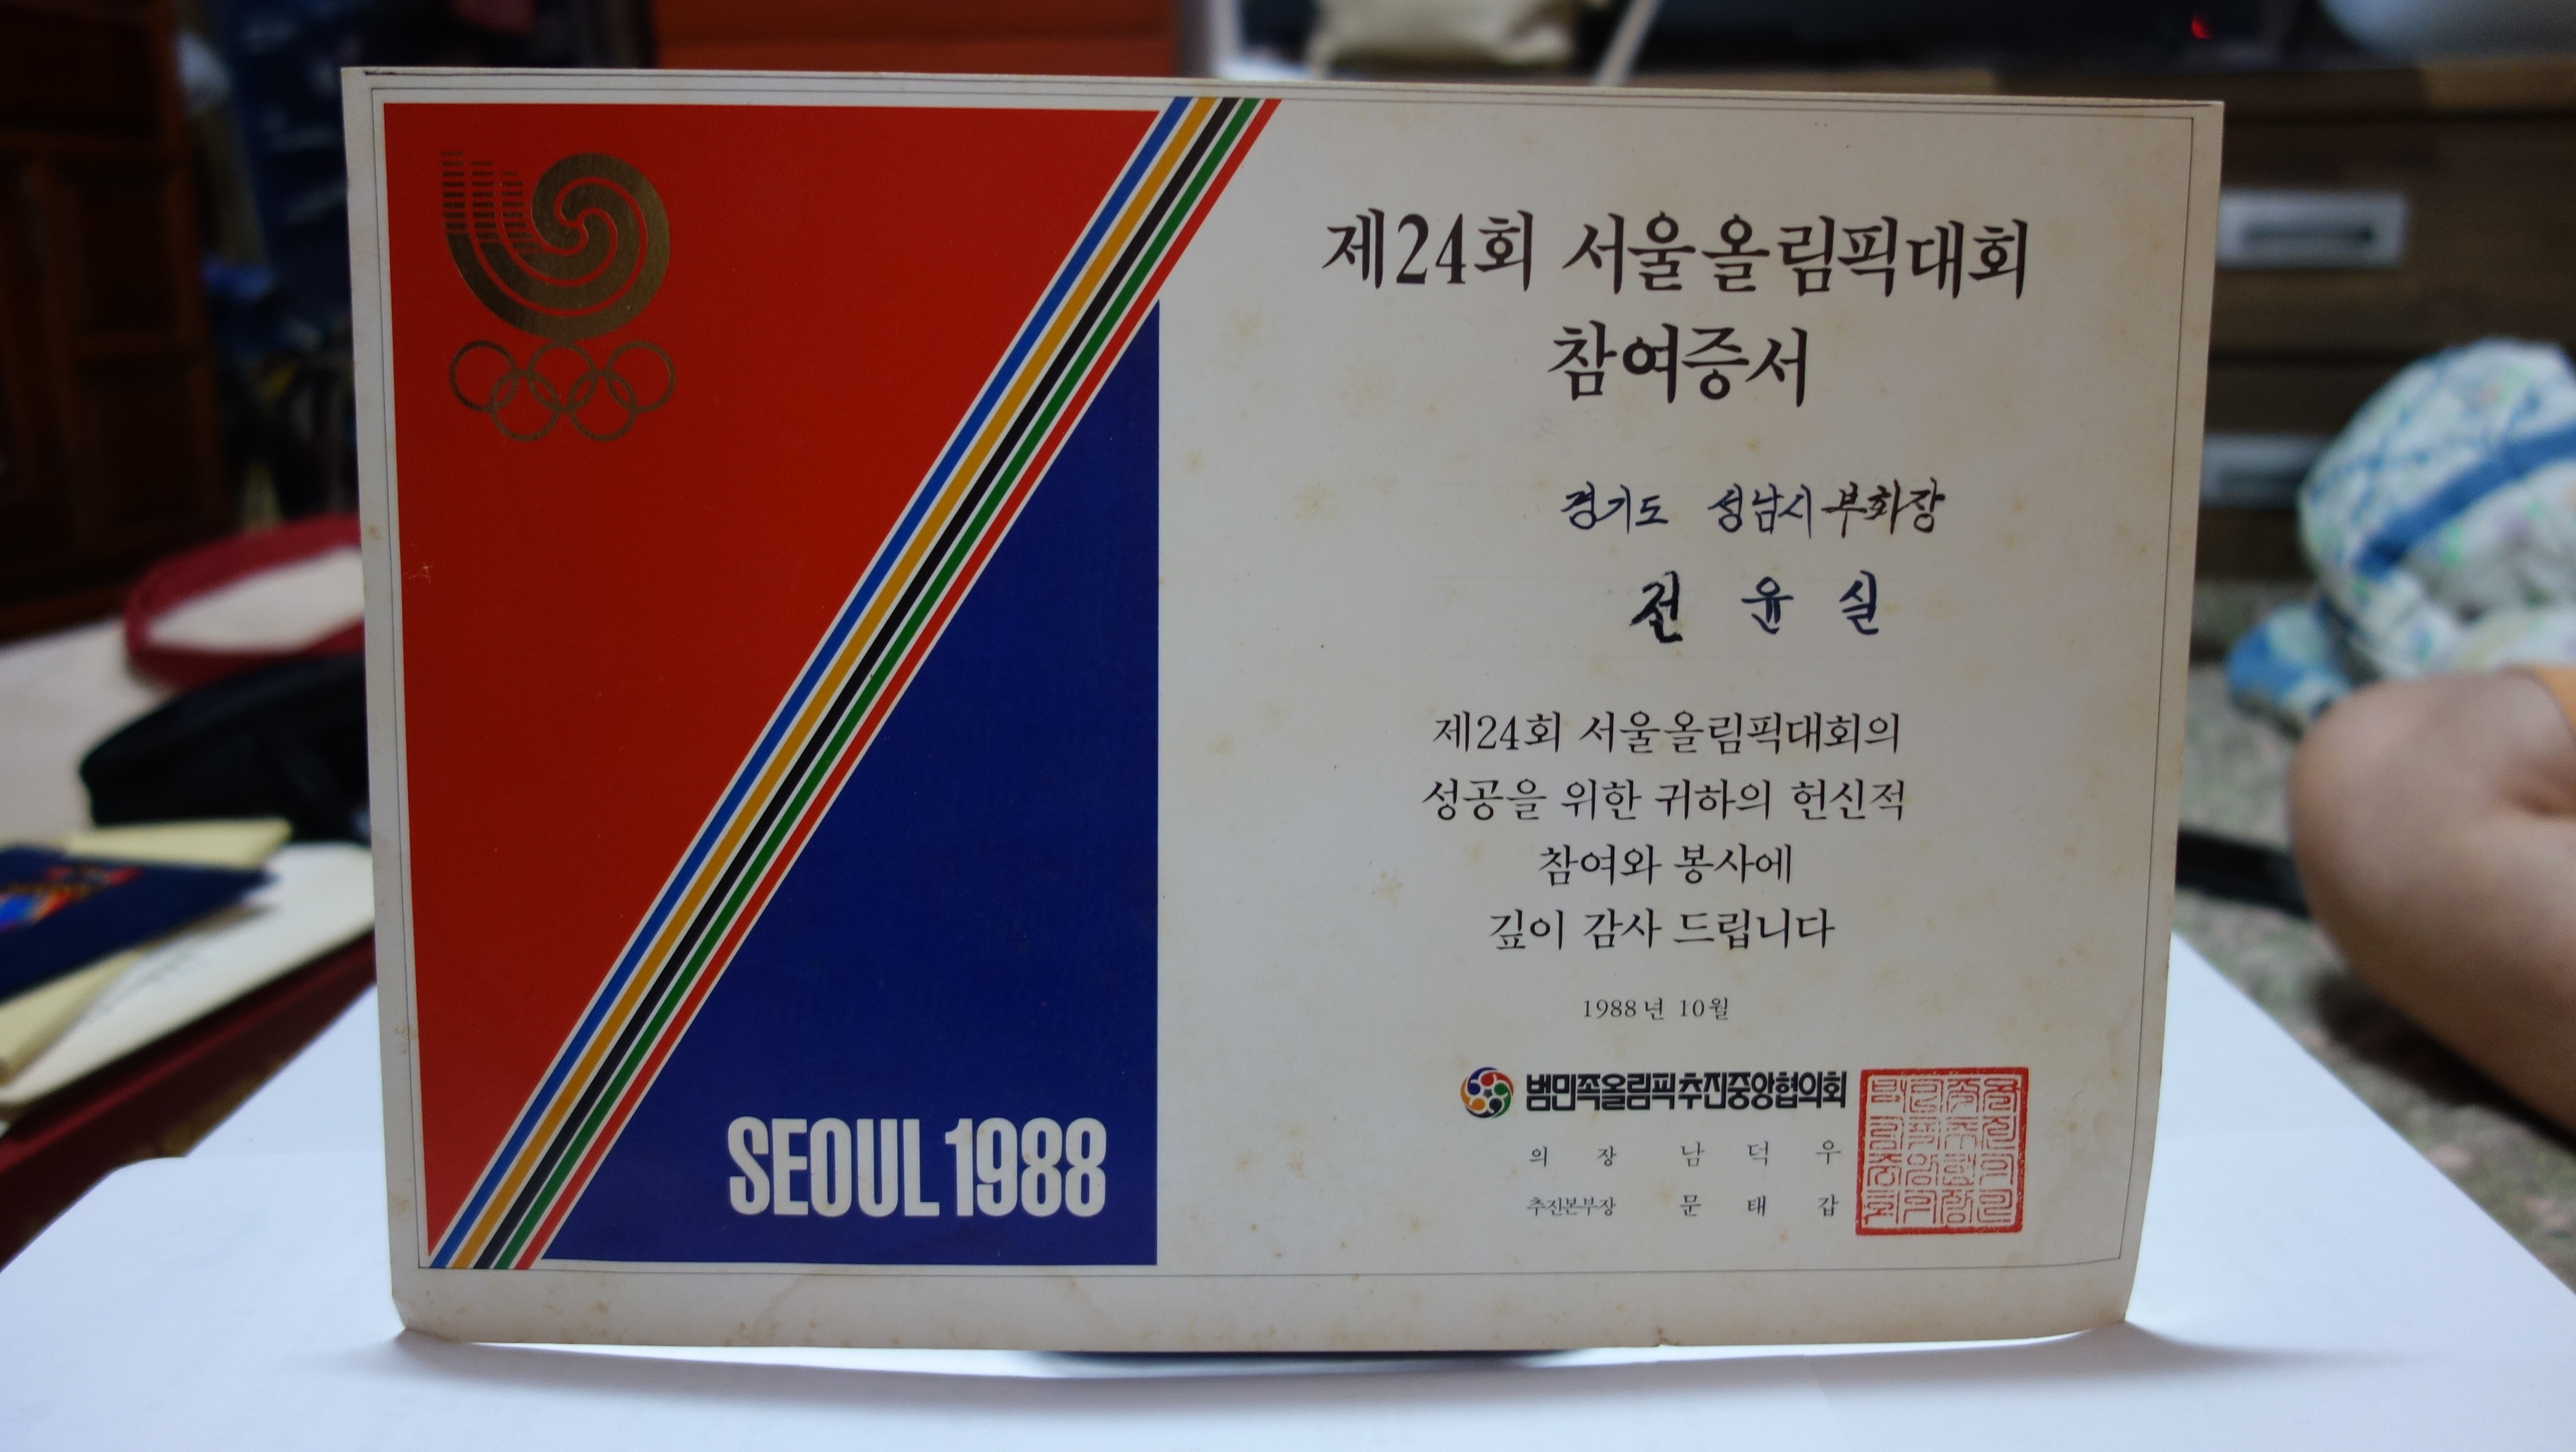 제24회 서울올림픽대회
참여증서
경기도 성남시 부회장
전 윤 실
제24회 서울올림픽대회의
성공을 위한 귀하의 헌신적
참여와 봉사에
깊이 감사 드립니다
1988년 10월
범민족올림픽추진중앙협의회
의 장 남 덕 우
추진본부장 문 태 갑
SEOUL 1988